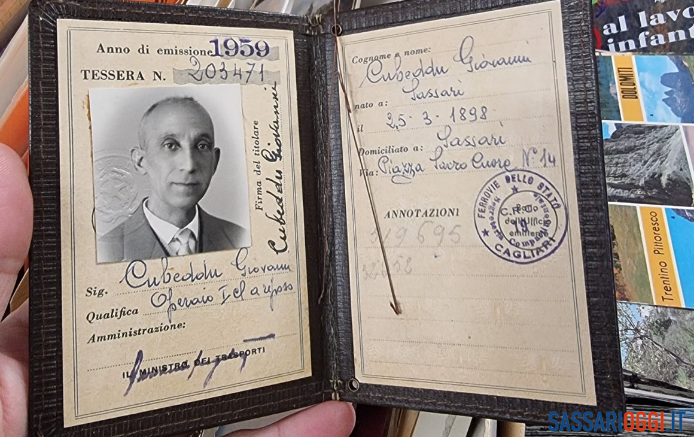 Anno di emissione 1959
TESSERA N. 203471
Firma del titolare
Cubeddu Giovanni
Sig. Cubeddu Giovanni
Qualifica Operaio I cl a riposo
Amministrazione:
IL MINISTRO DEI TRASPORTI
Cognome e nome:
Cubeddu Giovanni
nato a: Sassari
il 25-3-1898
Domiciliato a: Sassari
Via: Piazza Sacro Cuore N° 14
ANNOTAZIONI
FERROVIE DELLO STATO
CAGLIARI
al lavo
infant
DOLOMITI
Trentino Pittoresco
SASSARIOGGI.IT